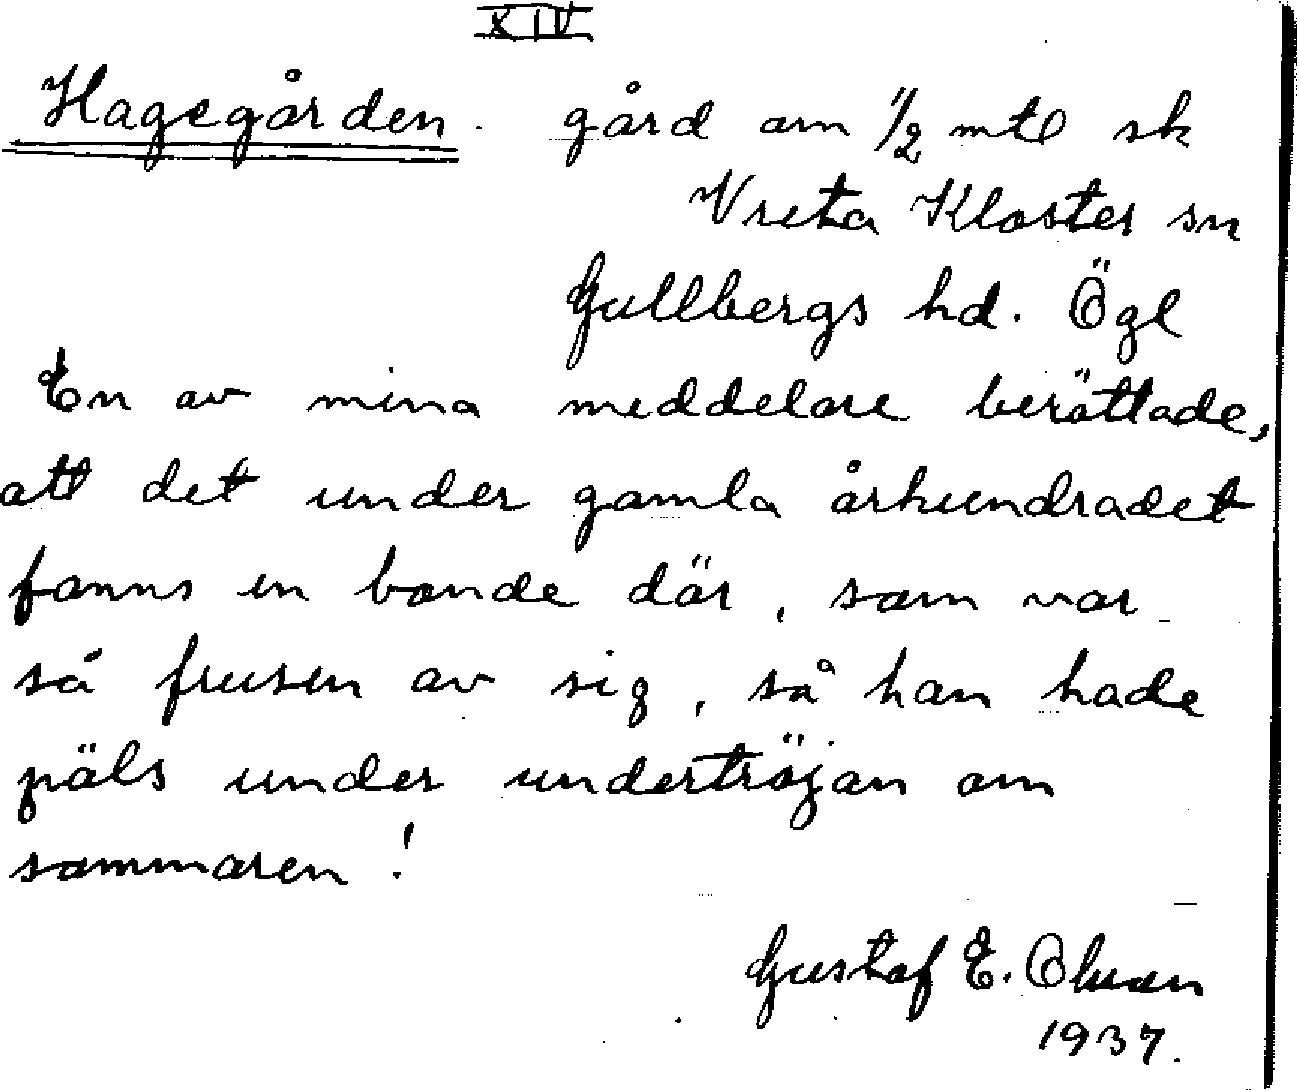 XIV
Hagegården. gård om 1/2 mtl sk
Vreta Kloster sn
Gullbergs hd. Ögl
En av mina meddelare berättade,
att det under gamla århundradet
fanns en bonde där, som var
så frusen av sig, så han hade
päls under undertröjan om
sommaren!
Gustaf E. Olsson
1937.